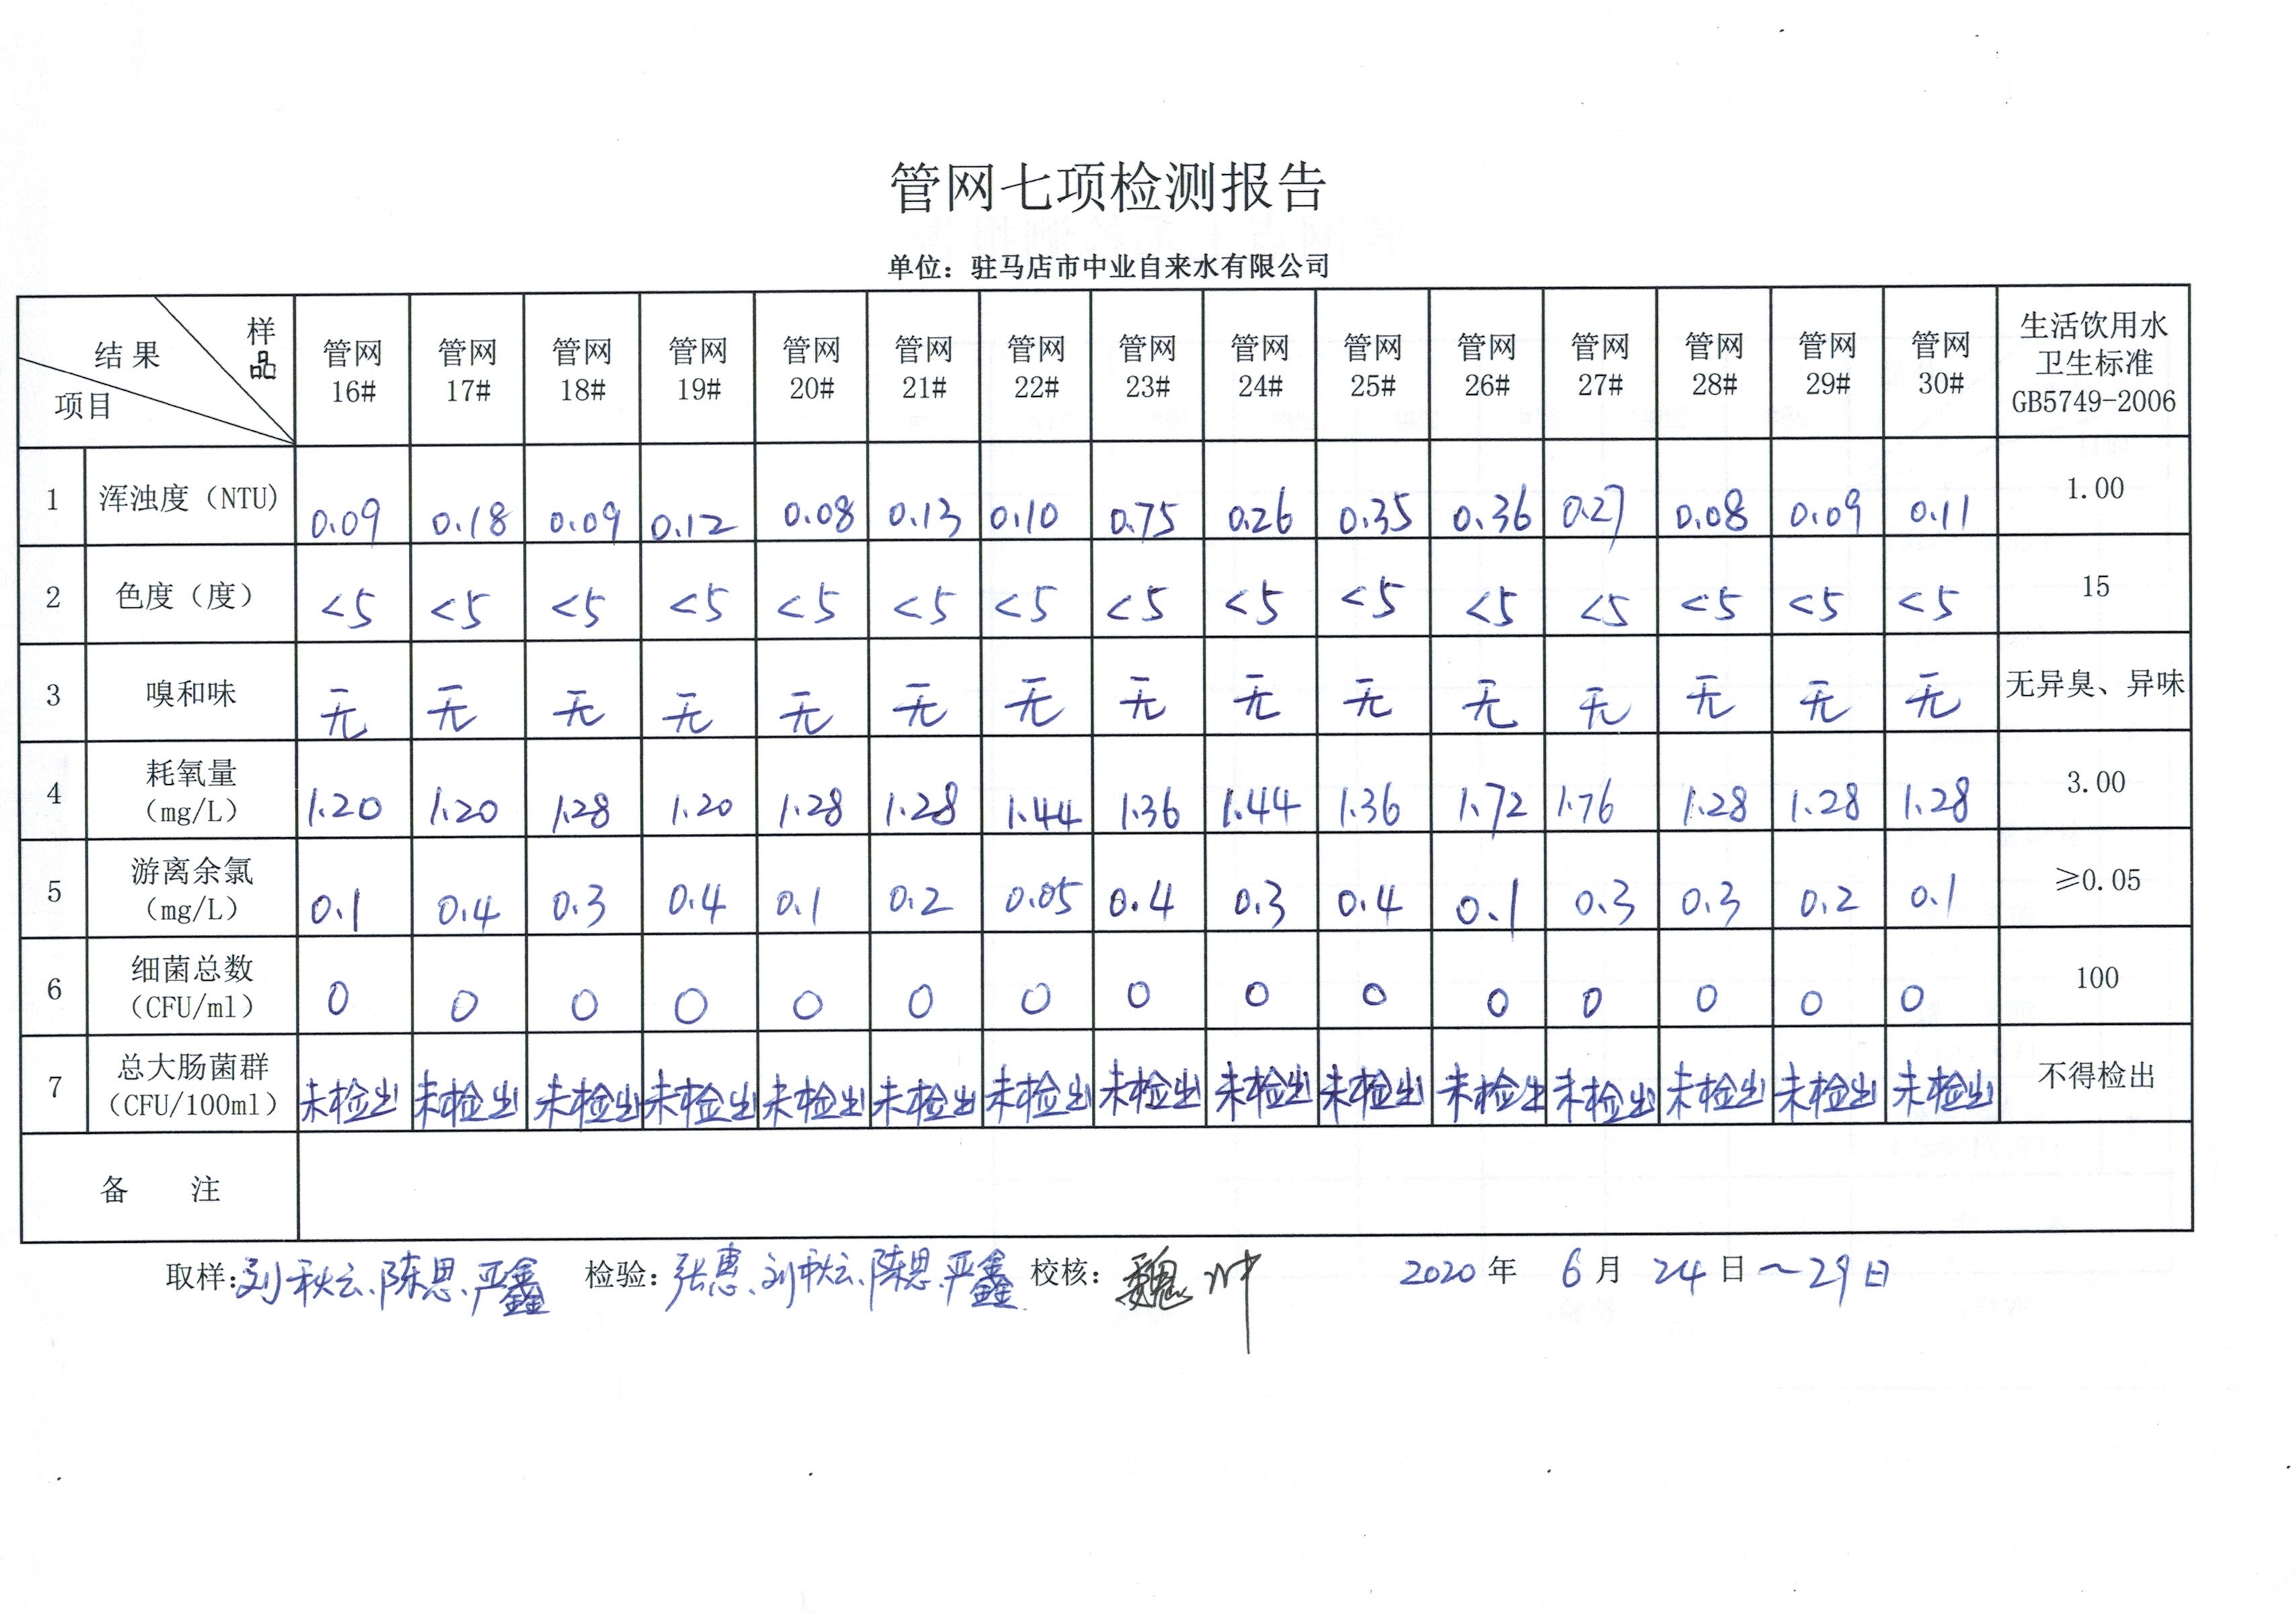 管网七项检测报告
单位：驻马店市中业自来水有限公司
结果 样品 项目 管网16# 管网17# 管网18# 管网19# 管网20# 管网21# 管网22# 管网23# 管网24# 管网25# 管网26# 管网27# 管网28# 管网29# 管网30# 生活饮用水卫生标准GB5749-2006
1 浑浊度（NTU） 0.09 0.18 0.09 0.12 0.08 0.13 0.10 0.75 0.26 0.35 0.36 0.27 0.08 0.09 0.11 1.00
2 色度（度） <5 <5 <5 <5 <5 <5 <5 <5 <5 <5 <5 <5 <5 <5 <5 15
3 嗅和味 无 无 无 无 无 无 无 无 无 无 无 无 无 无 无 无异臭、异味
4 耗氧量（mg/L） 1.20 1.20 1.28 1.20 1.28 1.28 1.44 1.36 1.44 1.36 1.72 1.76 1.28 1.28 1.28 3.00
5 游离余氯（mg/L） 0.1 0.4 0.3 0.4 0.1 0.2 0.05 0.4 0.3 0.4 0.1 0.3 0.3 0.2 0.1 ≥0.05
6 细菌总数（CFU/ml） 0 0 0 0 0 0 0 0 0 0 0 0 0 0 0 100
7 总大肠菌群（CFU/100ml） 未检出 未检出 未检出 未检出 未检出 未检出 未检出 未检出 未检出 未检出 未检出 未检出 未检出 未检出 未检出 不得检出
备 注
取样：刘秋云、陈思、严鑫 检验：张惠、刘秋云、陈思、严鑫 校核：魏冲 2020年 6月 24日～29日